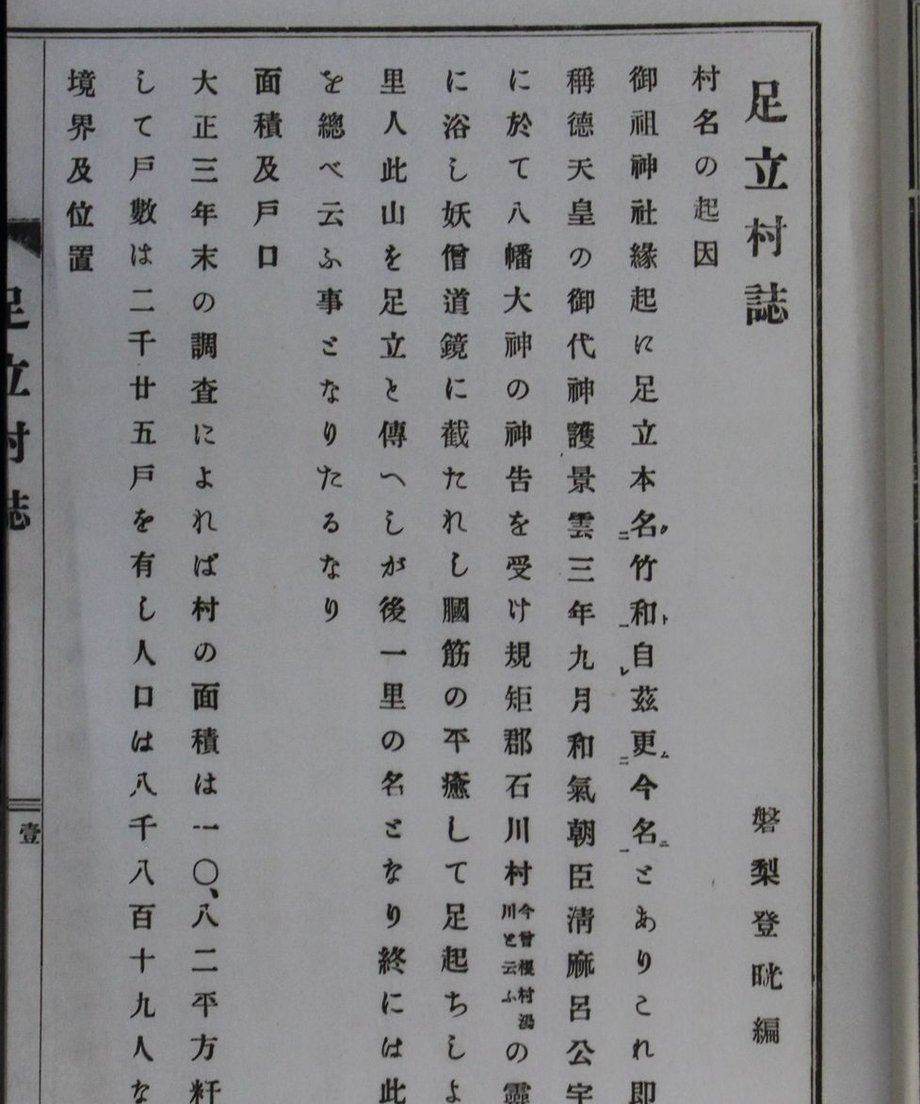 足立村誌
磐梨登晄編
村名の起因
御祖神社緣起に足立本名竹和自茲更今名とありこれ卽
稱德天皇の御代神護景雲三年九月和氣朝臣淸麻呂公宇
に於て八幡大神の神告を受け規矩郡石川村今曾根村湯川と云ふの靈
に浴し妖僧道鏡に截たれし膕筋の平癒して足起ちしよ
里人此山を足立と傳へしが後一里の名となり終には此
を總べ云ふ事となりたるなり
面積及戶口
大正三年末の調査によれば村の面積は一〇、八二平方粁
して戶數は二千廿五戶を有し人口は八千八百十九人な
境界及位置
足立村誌
壹